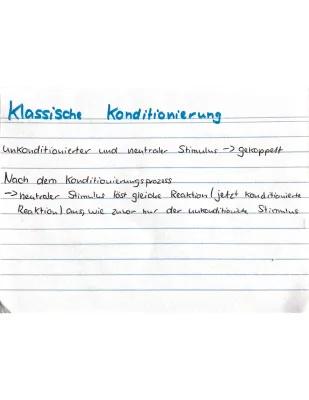 Klassische Konditionierung
Unkonditionierter und neutraler Stimulus -> gekoppelt
Nach dem Konditionierungsprozess
-> neutraler Stimulus löst gleiche Reaktion (jetzt konditionierte
Reaktion) aus, wie zuvor nur der unkonditionierte Stimulus